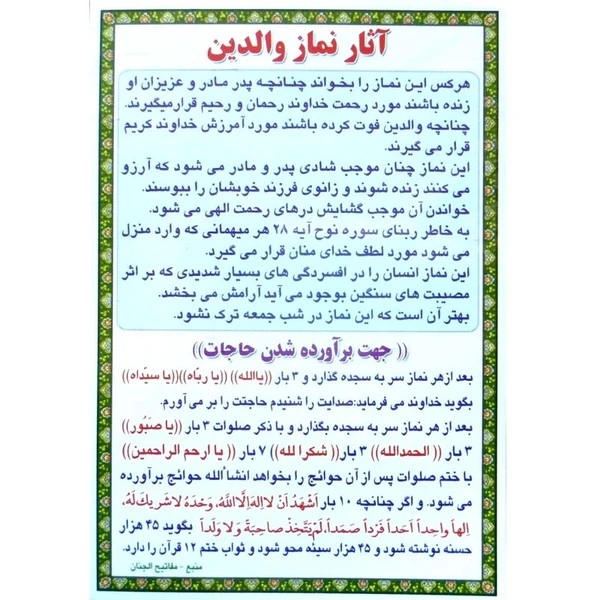 آثار نماز والدین
هرکس این نماز را بخواند چنانچه پدر مادر و عزیزان او
زنده باشند مورد رحمت خداوند رحمان و رحیم قرارمیگیرند.
چنانچه والدین فوت کرده باشند مورد آمرزش خداوند کریم
قرار می گیرند.
این نماز چنان موجب شادی پدر و مادر می شود که آرزو
می کنند زنده شوند و زانوی فرزند خویشان را ببوسند.
خواندن آن موجب گشایش درهای رحمت الهی می شود.
به خاطر ربنای سوره نوح آیه ۲۸ هر میهمانی که وارد منزل
می شود مورد لطف خدای منان قرار می گیرد.
این نماز انسان را در افسردگی های بسیار شدیدی که بر اثر
مصیبت های سنگین بوجود می آید آرامش می بخشد.
بهتر آن است که این نماز در شب جمعه ترک نشود.
(( جهت برآورده شدن حاجات))
بعد ازهر نماز سر به سجده گذارد و ۳ بار ((یاالله)) ((یا ربّاه))((یا سیّداه))
بگوید خداوند می فرماید:صدایت را شنیدم حاجتت را بر می آورم.
بعد از هر نماز سر به سجده بگذارد و با ذکر صلوات ۳ بار ((یا صَبُور))
۳ بار ((الحمدالله)) ۳ بار((شکرا لله)) ۷ بار ((یا ارحم الراحمین))
با ختم صلوات پس از آن حوائج را بخواهد انشاألله حوائج برآورده
می شود. و اگر چنانچه ۱۰ بار اَشْهَدُ اَنْ لااِلهَ اِلَّا اللَّهُ، وَحْدَهُ لا شَریکَ لَهُ،
اِلهاً واحِداً اَحَداً فَرْداً صَمَداً، لَمْ یَتَّخِذْ صاحِبَةً وَ لا وَلَداً بگوید ۴۵ هزار
حسنه نوشته شود و ۴۵ هزار سیئه محو شود و ثواب ختم ۱۲ قرآن را دارد.
منبع - مفاتیح الجنان